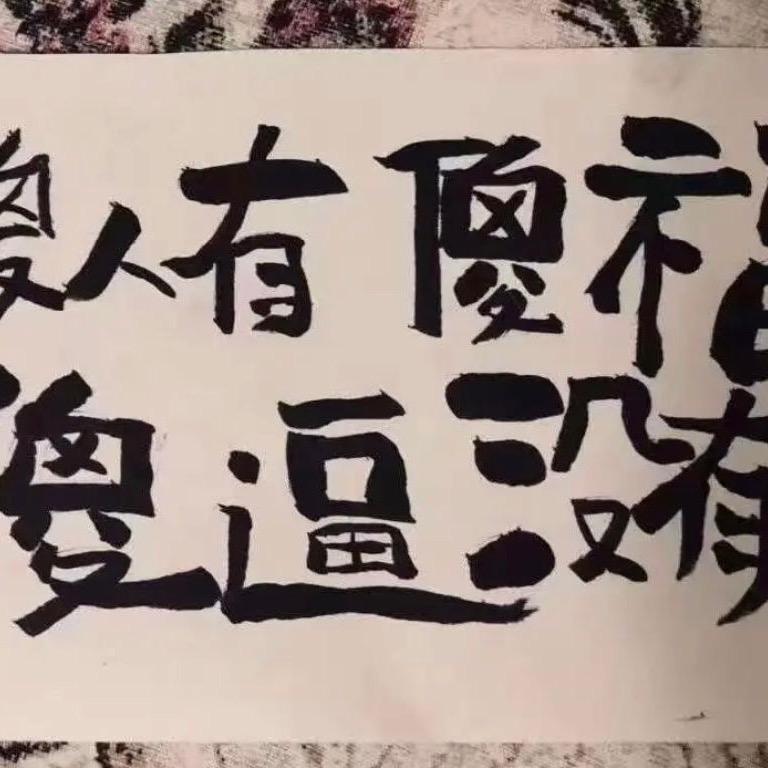 傻人有傻福
傻逼没有